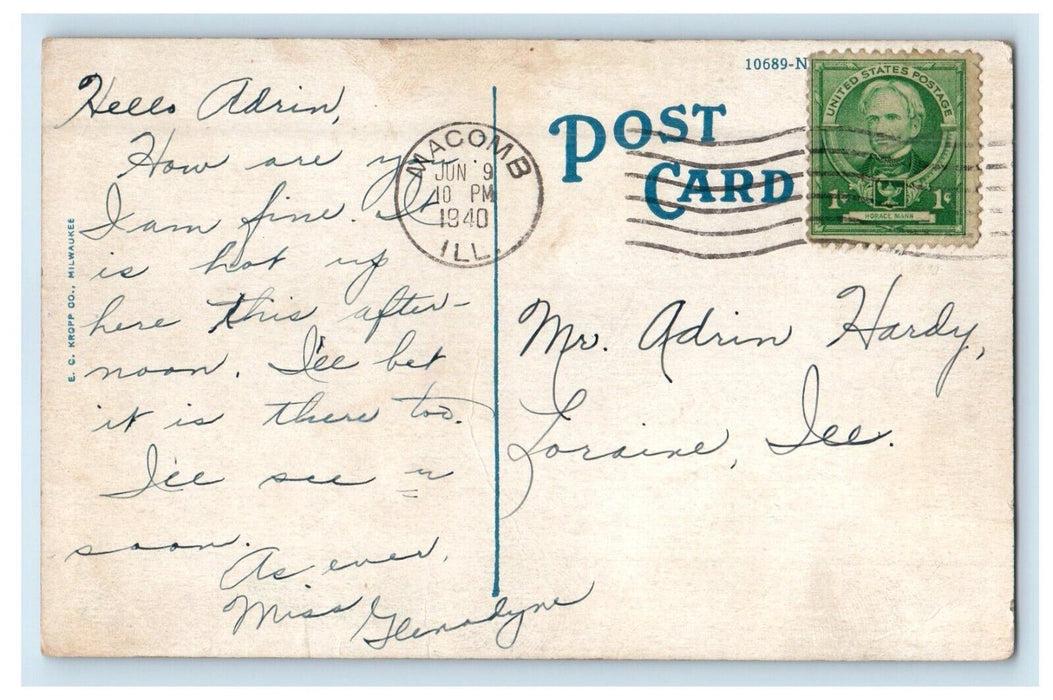 Hello Adrin,
How are you.
I am fine. It
is hot up
here this after-
noon. I'll bet
it is there too.
I'll see u
soon.
As ever,
Miss Glenadyne
E. C. KROPP CO., MILWAUKEE
MACOMB
JUN 9
10 PM
1940
ILL.
10689-N
POST
CARD
UNITED STATES POSTAGE
1¢ 1¢
HORACE MANN
Mr. Adrin Hardy,
Loraine, Ill.